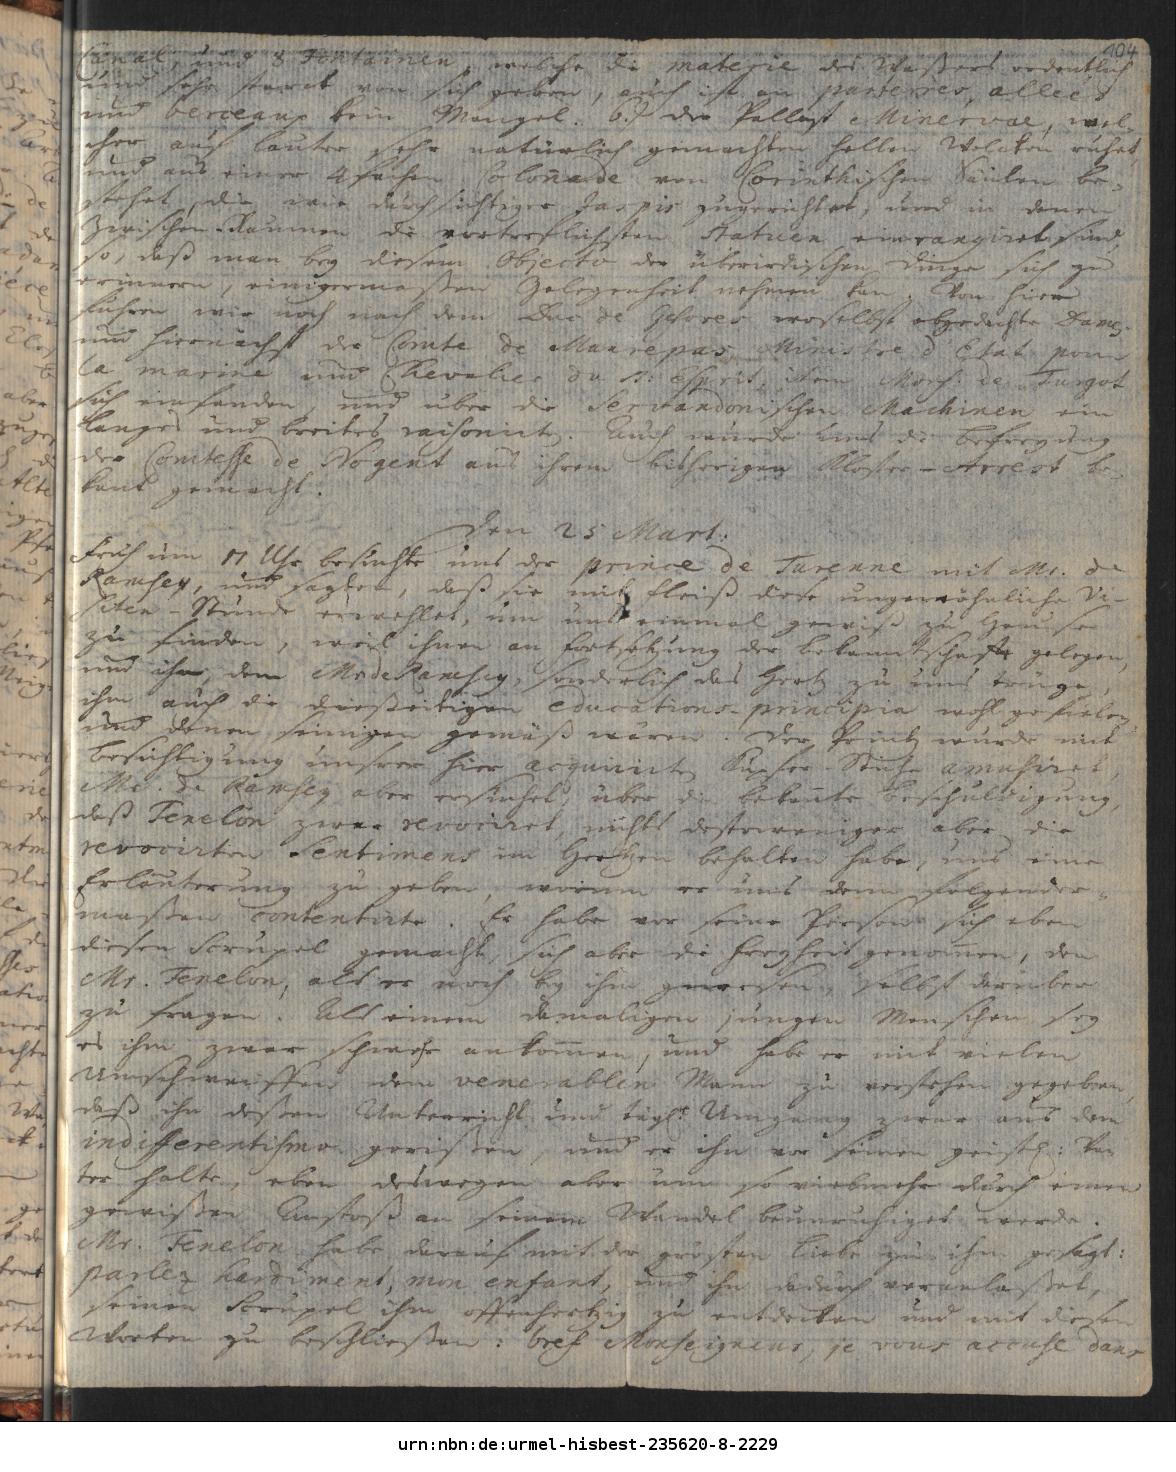 104
Canal, und 8 Fontainen, welche die materie des Waßers ordentlich
und sehr starck von sich geben, auch ist an parterres, allées
und berceaux kein Mangel. 6.) der Pallast Minervae, wel-
cher auf lauter sehr natürlich gemachten hellen Wolcken ruhet,
und aus einer 4fachen Colonnade von Corinthischen Säulen be-
stehet, die wie durchsichtiger Jaspis zugerichtet, und in denen
Zwischen-Räumen die vortreflichsten Statuen einrangiret sind,
so, daß man bey diesem Objecto der überirdischen Dinge sich zu
erinnern, einigermaßen Gelegenheit nehmen kan. Von hier
fuhren wir noch nach dem Duc de Gesvres, woselbst obgedachte Dames
und hiernächst der Comte de Maurepas, Ministre d'Etat pour
la marine und Chevalier du S. Esprit, item Mons. de Turgot
sich einfanden, und über die Servandonischen Machinen ein
langes und breites raisonirten. Auch wurde uns die Befreyung
der Comtesse de Nogent aus ihrem bisherigen Kloster-Arrest be-
kant gemacht.
Den 25 Mart.
Früh um 11 Uhr besuchte uns der prince de Turenne mit Mr. de
Ramsey, und sagten, daß sie mit Fleiß diese ungewöhnliche Vi-
siten-Stunde erwehlet, um uns einmal gewiß zu Hause
zu finden, weil ihnen an Fortsetzung der bekanntschaft gelegen,
und ihn, dem Mr de Ramsey, sonderlich das Hertz zu uns trüge,
ihm auch die dießeitigen educations-principia wohl gefielen,
und denen seinigen gemäß wären. Der Printz wurde mit
Besichtigung unsrer hier acquirirten Kupfer-Stiche amusiret,
Mr. de Ramsey aber ersuchet, über die bekante Beschuldigung,
daß Fenelon zwar revociret, nichts destoweniger aber die
revocirten Sentimens im Hertzen behalten habe, uns eine
Erläuterung zu geben, worinn er uns denn folgender-
maßen contentirte. Er habe vor seine Person sich eben
diesen Scrupel gemacht, sich aber die Freyheit genommen, den
Mr. Fenelon, als er noch bey ihm gewesen, selbst darüber
zu fragen. Als einem damaligen jungen Menschen sey
es ihm zwar schwehr ankommen, und habe er mit vielen
Umschweiffen dem venerablen Mann zu verstehen gegeben,
daß ihn deßen Unterricht und tägl. Umgang zwar aus dem
indifferentismo gerißen, und er ihn vor seinen geistl. Va-
ter halte, eben deswegen aber um so vielmehr durch einen
gewißen Anstoß an seinem Wandel beunruhiget werde.
Mr. Fenelon habe darauf mit der grösten Liebe zu ihm gesagt:
parlez hardiment, mon enfant, und ihn dadurch veranlaßet,
seinen Scrupel ihm offenhertzig zu entdecken und mit diesen
Worten zu beschließen: bref Monseigneur, je vous accuse dans
urn:nbn:de:urmel-hisbest-235620-8-2229